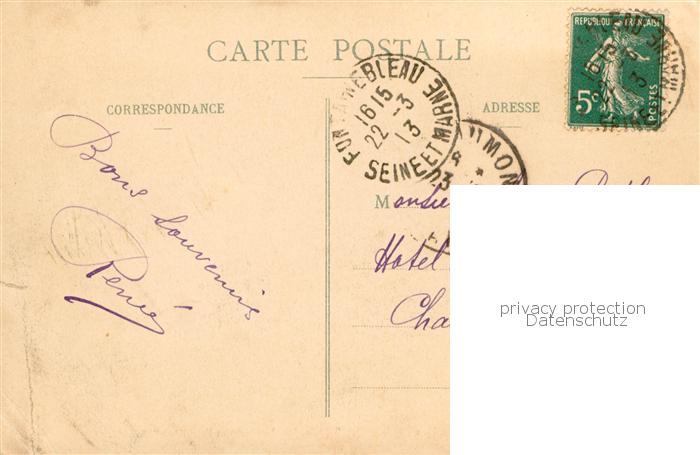 CARTE POSTALE
CORRESPONDANCE
ADRESSE
REPUBLIQUE FRANÇAISE
5c
POSTES
FONTAINEBLEAU
16 15
22 - 3
13
SEINE ET MARNE
Bons souvenirs
René
Monsie
Hotel
Cha
privacy protection
Datenschutz